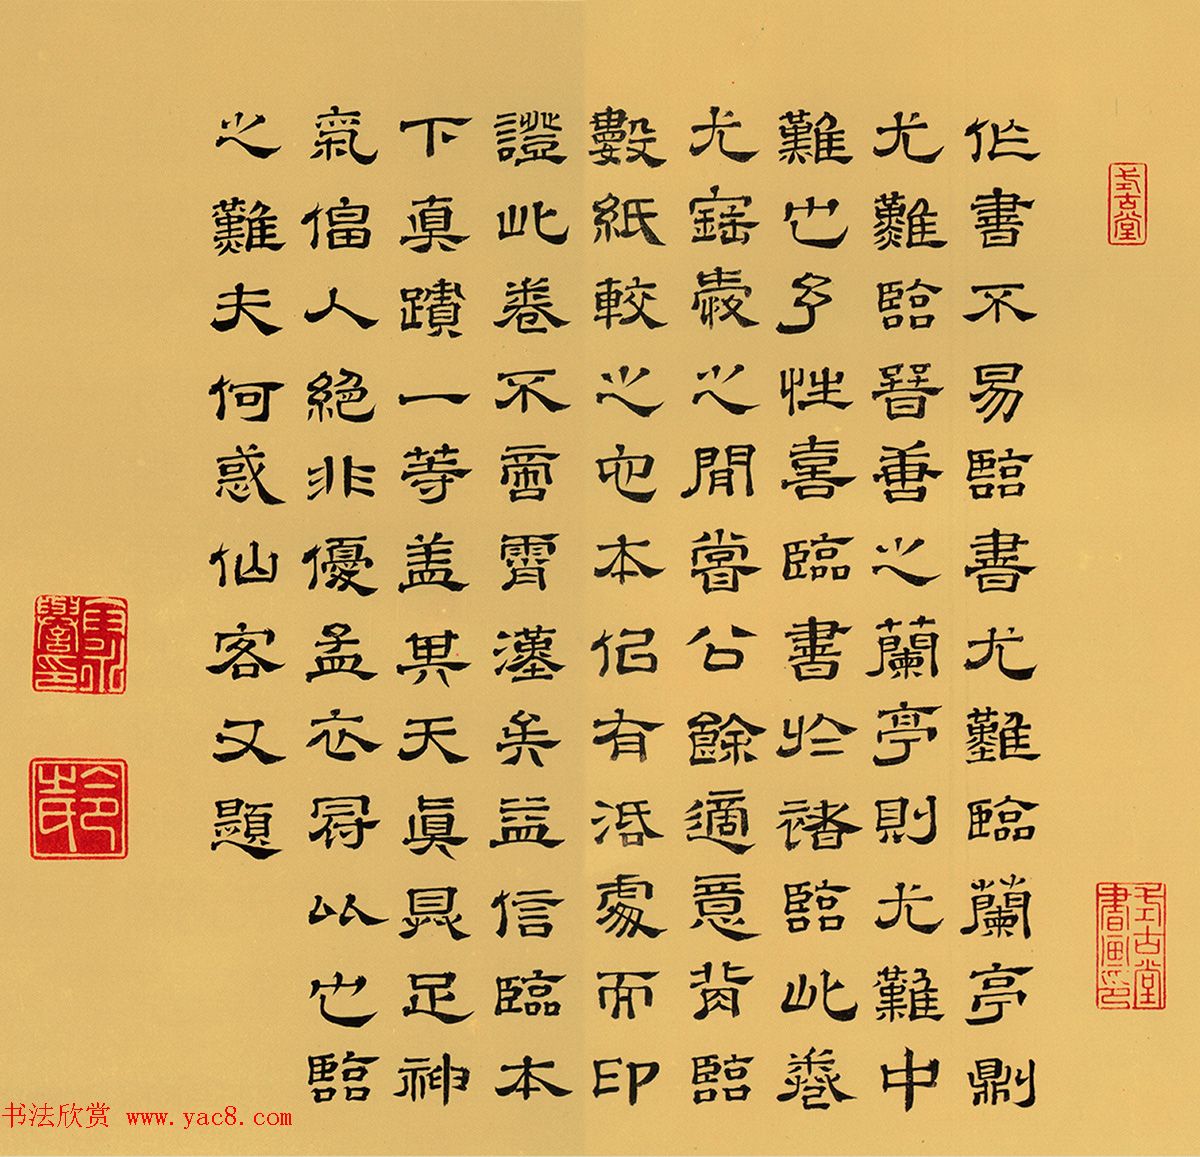 作書不易臨書尤難臨蘭亭則
尤難臨善之蘭亭則尤難中
難也予性喜臨書於褚臨此卷
尤寶愛之閒嘗公餘適意背臨
數紙較之它本佀有活處而印
證此卷不啻霄漢矣益信臨本
下真蹟一等蓋其天真具足神
氣偪人絕非優孟衣冠比也臨
之難夫何惑仙客又題
式古堂
式古堂書畫印
卞永譽印
书法欣赏 www.yac8.com